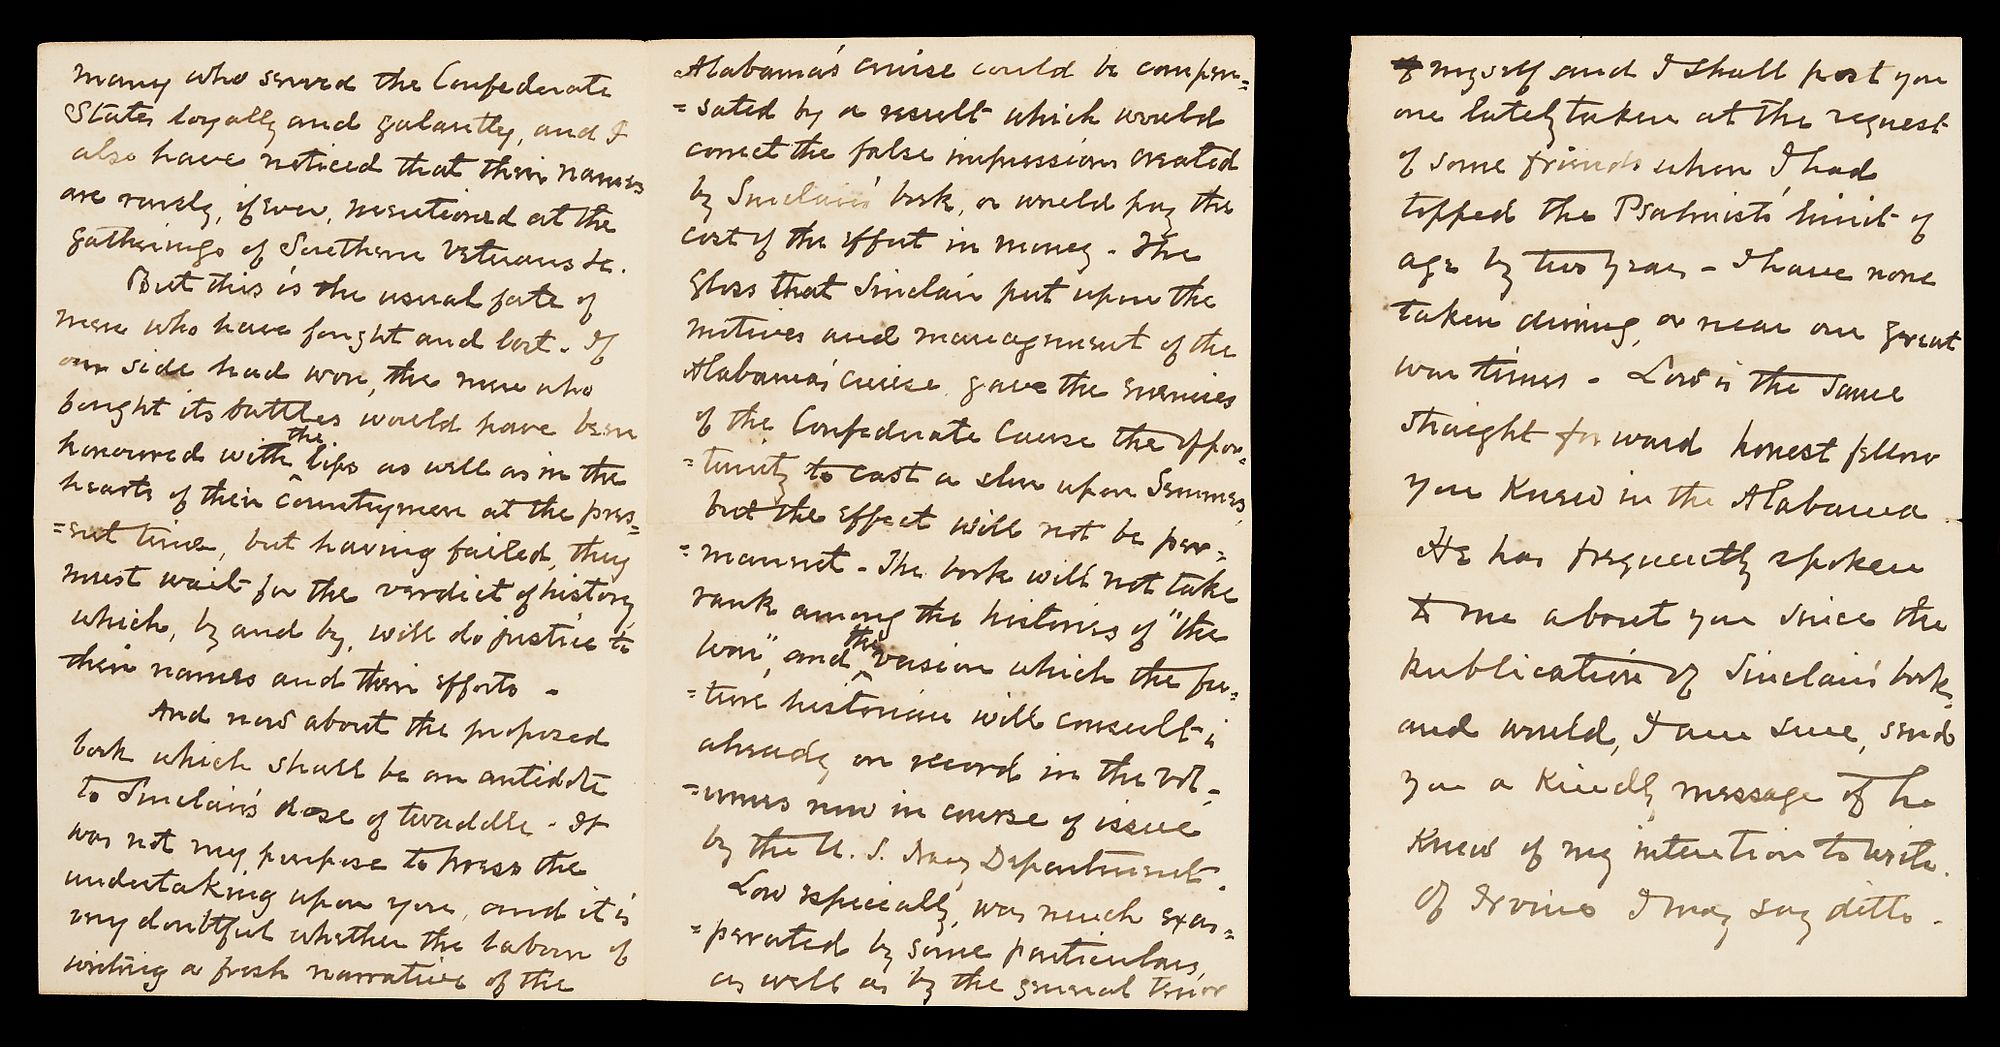 many who served the Confederate
States loyally and galantly, and I
also have noticed that their names
are rarely, if ever, mentioned at the
gatherings of Southern Veterans &c.
But this is the usual fate of
men who have fought and lost. If
our side had won, the men who
fought its battles would have been
honoured with the lips as well as in the
hearts of their countrymen at the pres=
=ent time, but having failed, they
must wait for the verdict of history,
which, by and by, will do justice to
their names and their efforts -
And now about the proposed
book which shall be an antidote
to Sinclair's dose of twaddle. It
was not my purpose to press the
undertaking upon you, and it is
very doubtful whether the labour of
writing a fresh narrative of the
Alabama's cruise could be compen=
=sated by a result which would
correct the false impressions created
by Sinclair's book, or would pay the
cost of the effort in money - The
gloss that Sinclair put upon the
motives and management of the
Alabama's cruise gave the enemies
of the Confederate Cause the oppor=
=tunity to cast a slur upon Semmes,
but the effect will not be per=
=manent - The book will not take
rank among the histories of "the
war", and the version which the fu=
=ture historian will consult is
already on record in the vol=
=umes now in course of issue
by the U. S. Navy Department.
Low especially, was much exas=
=perated by some particulars,
as well as by the general tenor
of myself and I shall post you
one lately taken at the request
of some friends when I had
topped the Psalmist's limit of
age by two years - I have none
taken during, or near our great
war times - Low is the same
straight forward honest fellow
you knew in the Alabama.
He has frequently spoken
to me about you since the
publication of Sinclair's book,
and would, I am sure, send
you a kindly message if he
knew of my intention to write.
Of Irvine I may say ditto -